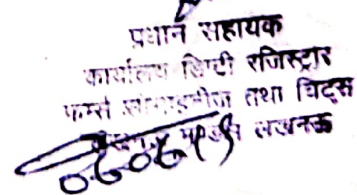 प्रधान सहायक
कार्यालय डिप्टी रजिस्ट्रार
फर्म्स सोसाइटीज तथा चिट्स
लखनऊ